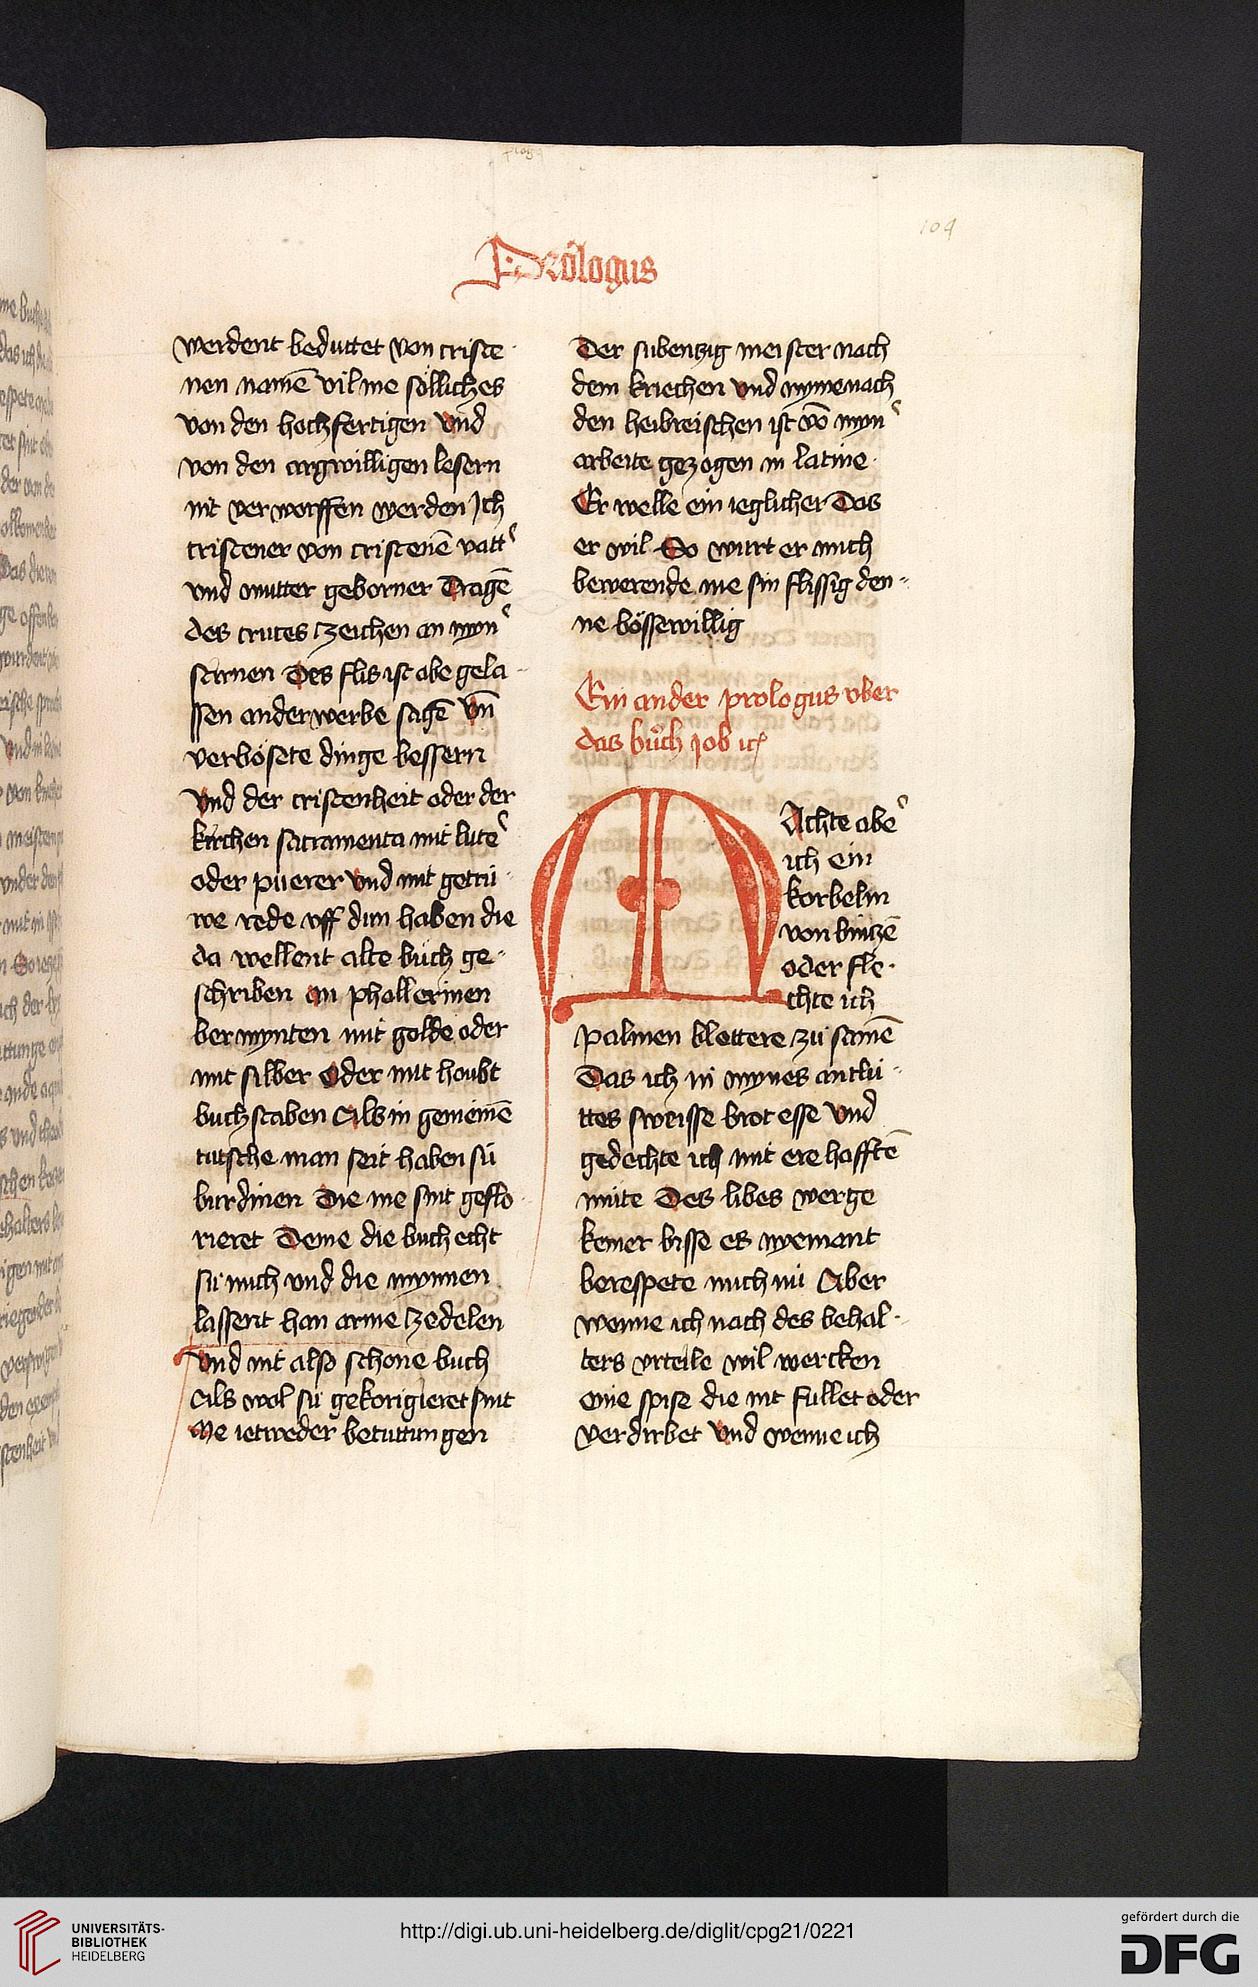 104
Prologus
werdent beduttet von criste
nen namē vil me sölliches
von den hochfertigen vnd
von den argwilligen lesern
nit verworffen werden Ich
cristener von cristenē vatt'
vnd mutter geborner Tragē
des crutes zeichen an myn'
stirnen Des flis ist abe gela
ssen anderwerbe sagē vn̄
verbösete dinge bessern
Vnd der cristenheit oder der
kirchen sacramenta mit lute'
oder puerer vnd mit getrü
we rede vff dun haben die
da wellent alte buch ge-
schriben an phallerinen
bermynten mit golde oder
mit silber Oder mit houbt
buchstaben Als in gemeinē
tutsche man seit haben sü
burdinen Die me sint geflo
rieret Denne die buch echt
sü mich vnd die mynnen
lassent han arme zedelen
Vnd nit also schone buch
Als wol sü gekorigieret sint
Me ietweder betuttungen
Der subentzig meister nach
dem kriechen vnd mynenach
den heibreischen ist vō myn'
arbeite gezogen in latine
Er welle ein ieglicher Das
er wil So wurt er mich
bewerende me sin flissig den-
ne bössewillig
Ein ander prologus vber
das buͦch Job ⁊c
MAchte abe'
ich ein
korbelin
von bintzē
oder fle-
chte ich
palmen blettere zü samē
Das ich in mynes antlü-
ttes sweisse brot esse Vnd
gedechte ich mit erehafftē
müte Des libes werge
keiner bisse es nyemant
berespete mich nü Aber
wenne ich nach des behal-
ters vrteile wil wercken
eine spise die nit fullet oder
verdirbet Vnd wenne ich
UNIVERSITÄTS-
BIBLIOTHEK
HEIDELBERG
http://digi.ub.uni-heidelberg.de/diglit/cpg21/0221
gefördert durch die
DFG